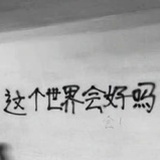 这个世界会好吗